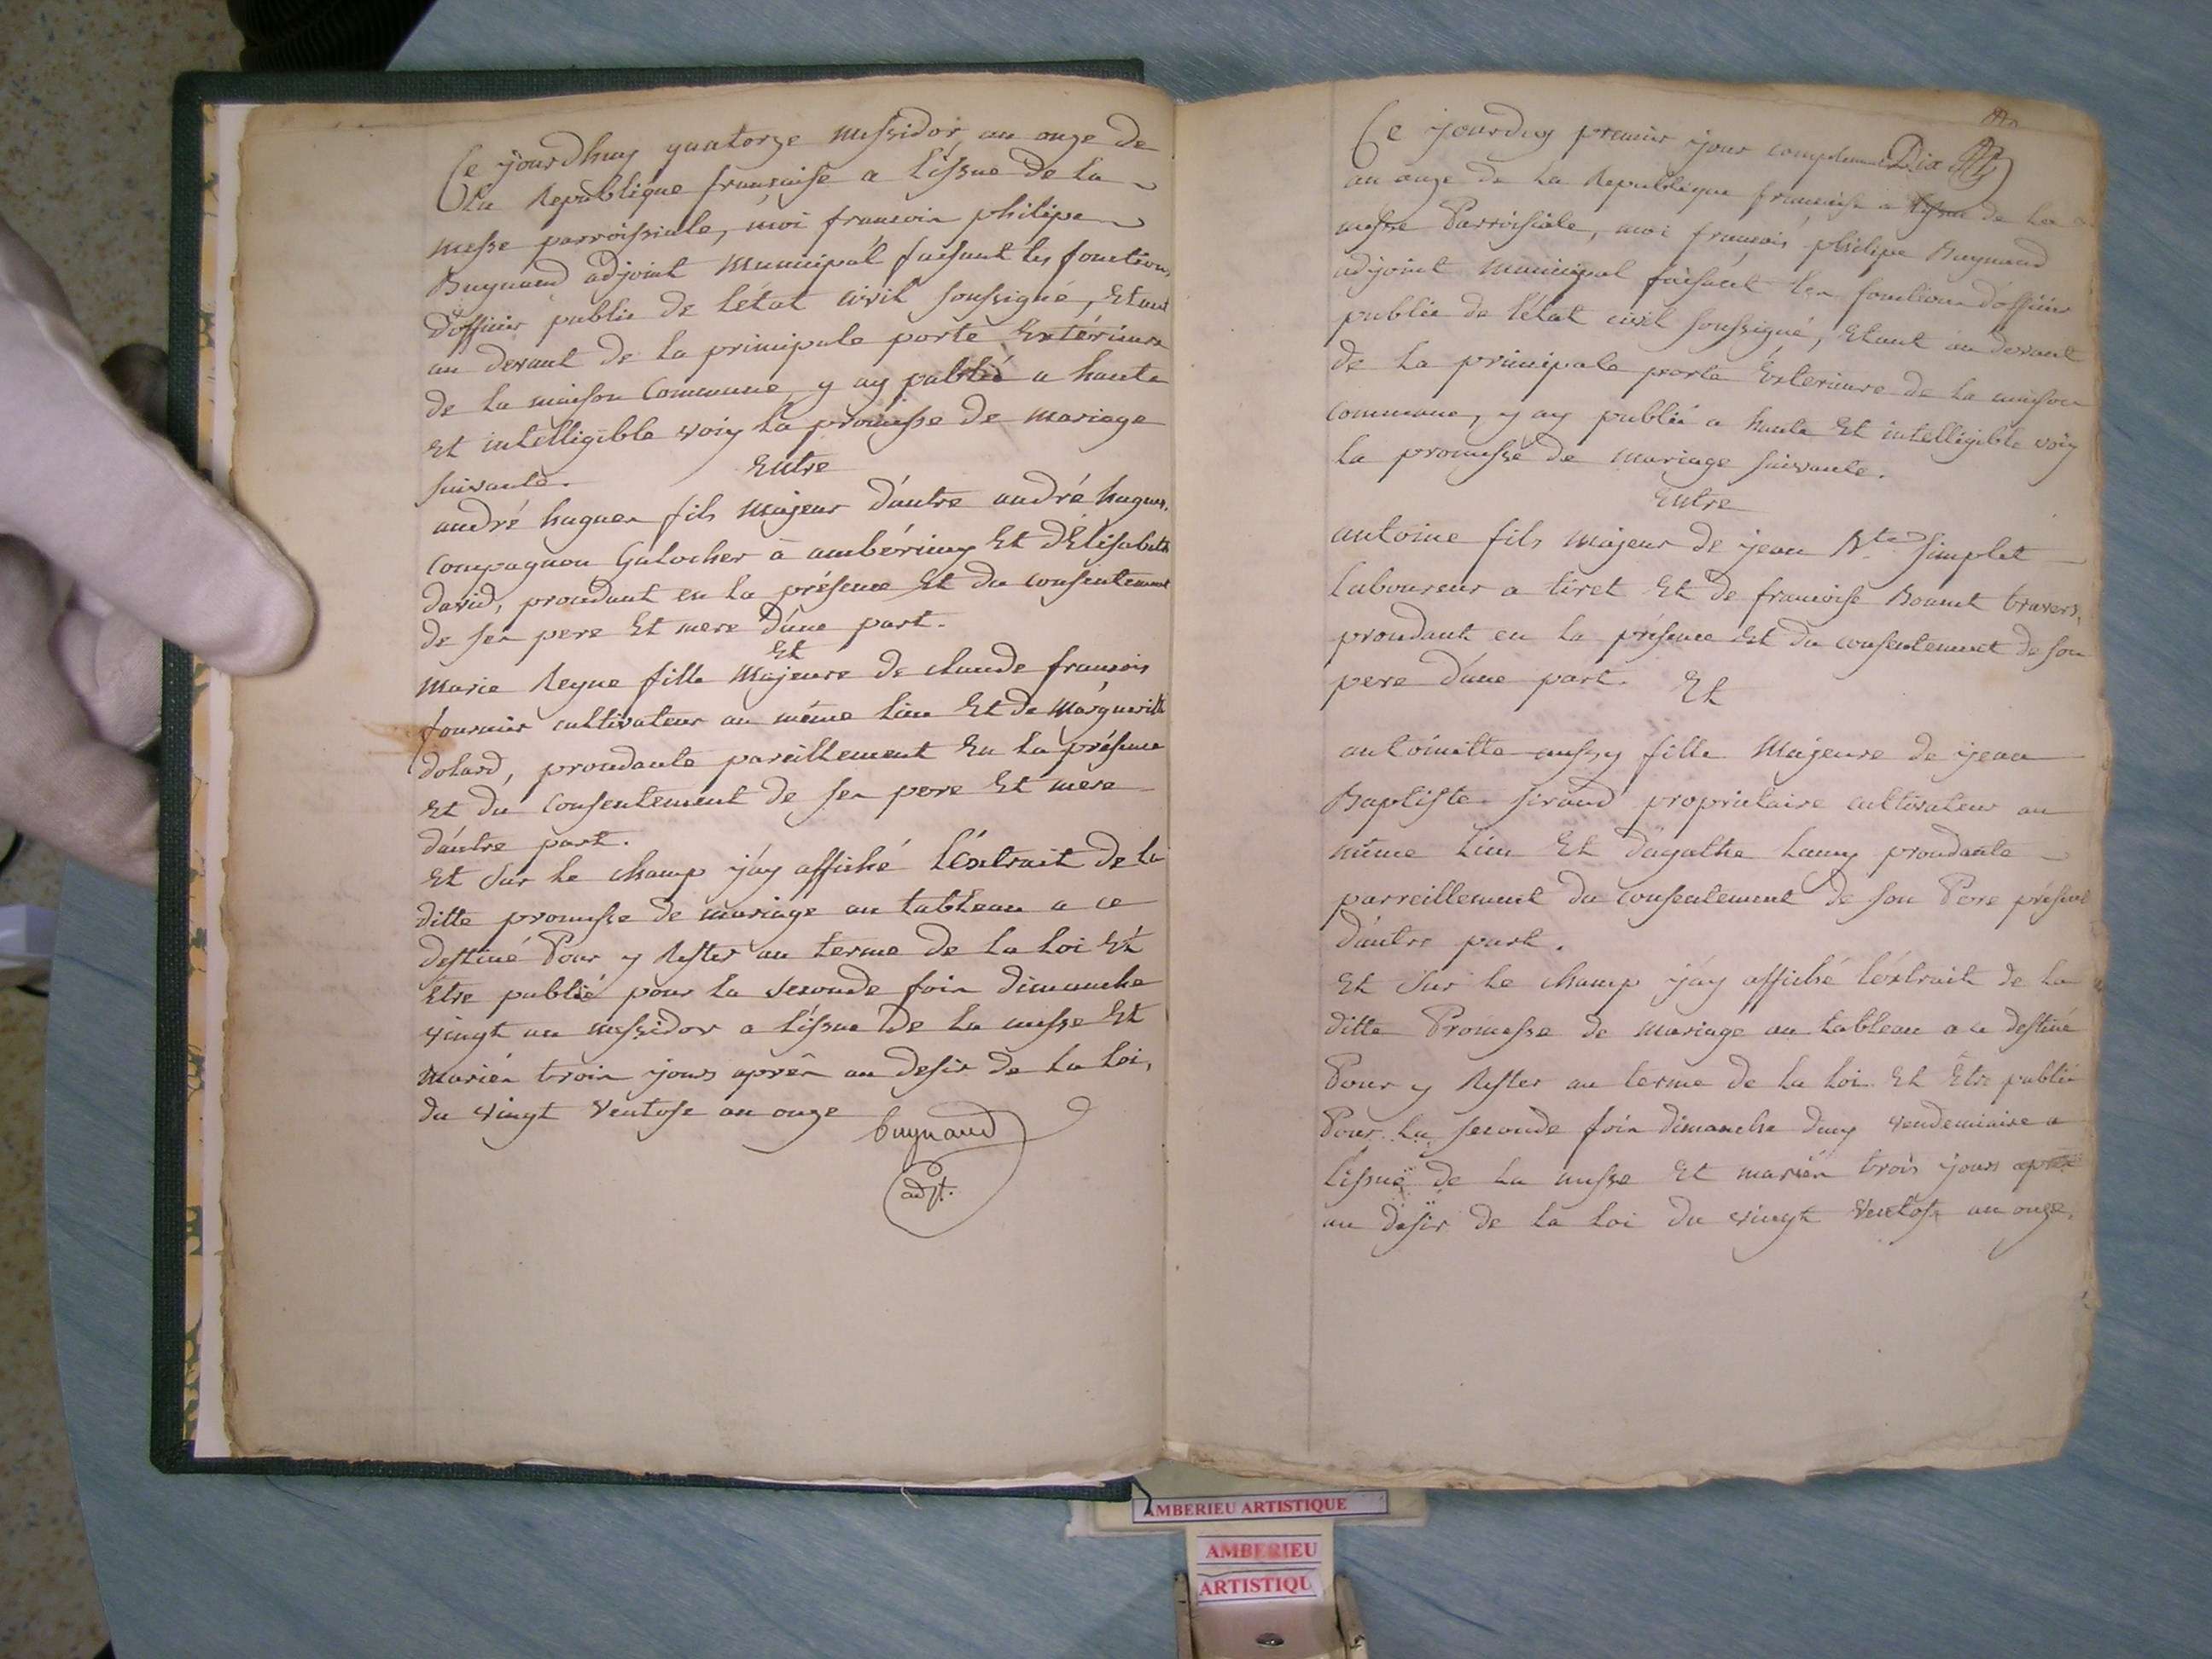 Ce jourdhuy quatorze messidor, an onze de
La Republique française a l'issue de la
messe parroissiale, moi francois philipe
Buynand adjoint Municipal faisant les fonctions
d'officier public de l'état civil soussigné, Etant
au devant de la principale porte Extérieure
de la maison Commune, y ay publié a haute
Et intelligible voix la promesse de mariage
suivante.
Entre
andré hugues fils Majeur d'autre andré hugues,
Compagnon Galocher à ambérieux Et d'Elisabeth
david, procédant en la présence Et du consentement
de ses pere Et mere d'une part.
Et
Marie Reyne fille Majeure de claude francois
fournier cultivateur au même lieu Et de Margueritte
dolard, procédante pareillement En la présence
Et du Consentement de ses pere Et mere
d'autre part.
Et Sur le champ j'ay affiché l'Extrait de la
ditte promesse de mariage au tableau a ce
destiné Pour y Rester au terme de la loi Et
Etre publié pour la seconde fois dimanche
vingt un messidor a l'issue de la messe Et
Mariés trois jours après au desir de la loi,
du vingt Ventose an onze
buynaud
adjt.
Ce jourduy premier jour complementaire
Dix
an onze de la Republique francaise a lissue de la
messe Parroissiale, moi francois philipe Buynand
adjoint Municipal faisant les fonctions d'officier
public de l'état civil soussigné, Etant au devant
de la principale porte Exterieure de la maison
commune, y ay publié a haute Et intelligible voix
la promesse de mariage suivante.
Entre
antoine fils Majeur de jean Bte. Simplet
laboureur a tiret Et de francoise Bonnet travers,
procédant en la présence Et du consentement de son
pere d'une part.
Et
antoinette aussy fille Majeure de jean
Baptiste Siraud propriétaire cultivateur au
même lieu Et d'agathe Lamy procédante
parreillement du consentement de son Pere présent
d'autre part.
Et Sur le champ j'ay affiché l'extrait de la
ditte Promesse de mariage au tableau a ce destiné
Pour y Rester au terme de la loi Et Etre publié
Pour la seconde fois dimanche vendemiaire a
lissue de la messe Et mariés trois jours après
au desir de la loi du vingt Ventose an onze,
AMBERIEU ARTISTIQUE
AMBERIEU
ARTISTIQU